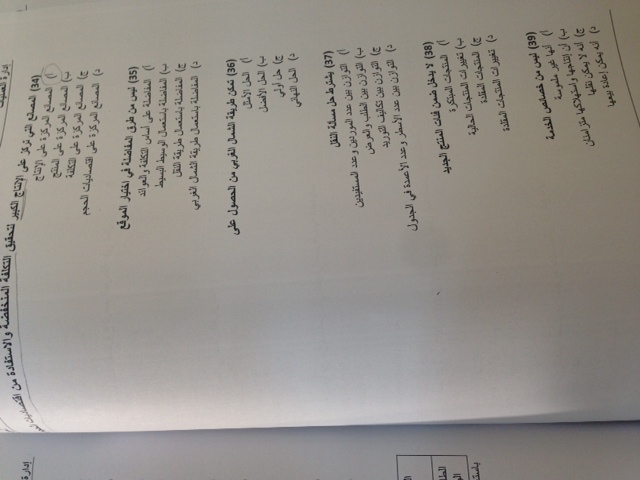 إدارة العمليات
(34) المصانع التي تركز على الإنتاج الكبير لتحقيق التكلفة المنخفضة والاستفادة من اقتصاديات
أ) المصانع المركزة على الإنتاج
ب) المصانع المركزة على المنتج
ج) المصانع المركزة على التكلفة
د) المصانع المركزة على اقتصاديات الحجم
(35) ليس من طرق المفاضلة في اختيار الموقع
أ) المفاضلة على أساس التكلفة والعوائد
ب) المفاضلة باستعمال الوسيط البسيط
ج) المفاضلة باستعمال طريقة النقل
د) المفاضلة باستعمال طريقة الشمال الغربي
(36) تمكن طريقة الشمال الغربي من الحصول على
أ) الحل الأمثل
ب) الحل الأفضل
ج) حل أولي
د) الحل النهائي
(37) يشترط حل مسألة النقل
أ) التوازن بين عدد الموردين وعدد المستفيدين
ب) التوازن بين الطلب والعرض
ج) التوازن بين تكاليف التوريد
د) التوازن بين عدد الأسطر وعدد الأعمدة في الجدول
(38) لا يدخل ضمن فئات المنتج الجديد
أ) المنتجات المبتكرة
ب) تغييرات المنتجات الحالية
ج) المنتجات المقلدة
د) تغييرات المنتجات المقلدة
(39) ليس من خصائص الخدمة
أ) أنها غير ملموسة
ب) أن إنتاجها واستهلاكها متزامنان
ج) أنه لا يمكن نقلها
د) أنه يمكن إعادة بيعها
إدارة